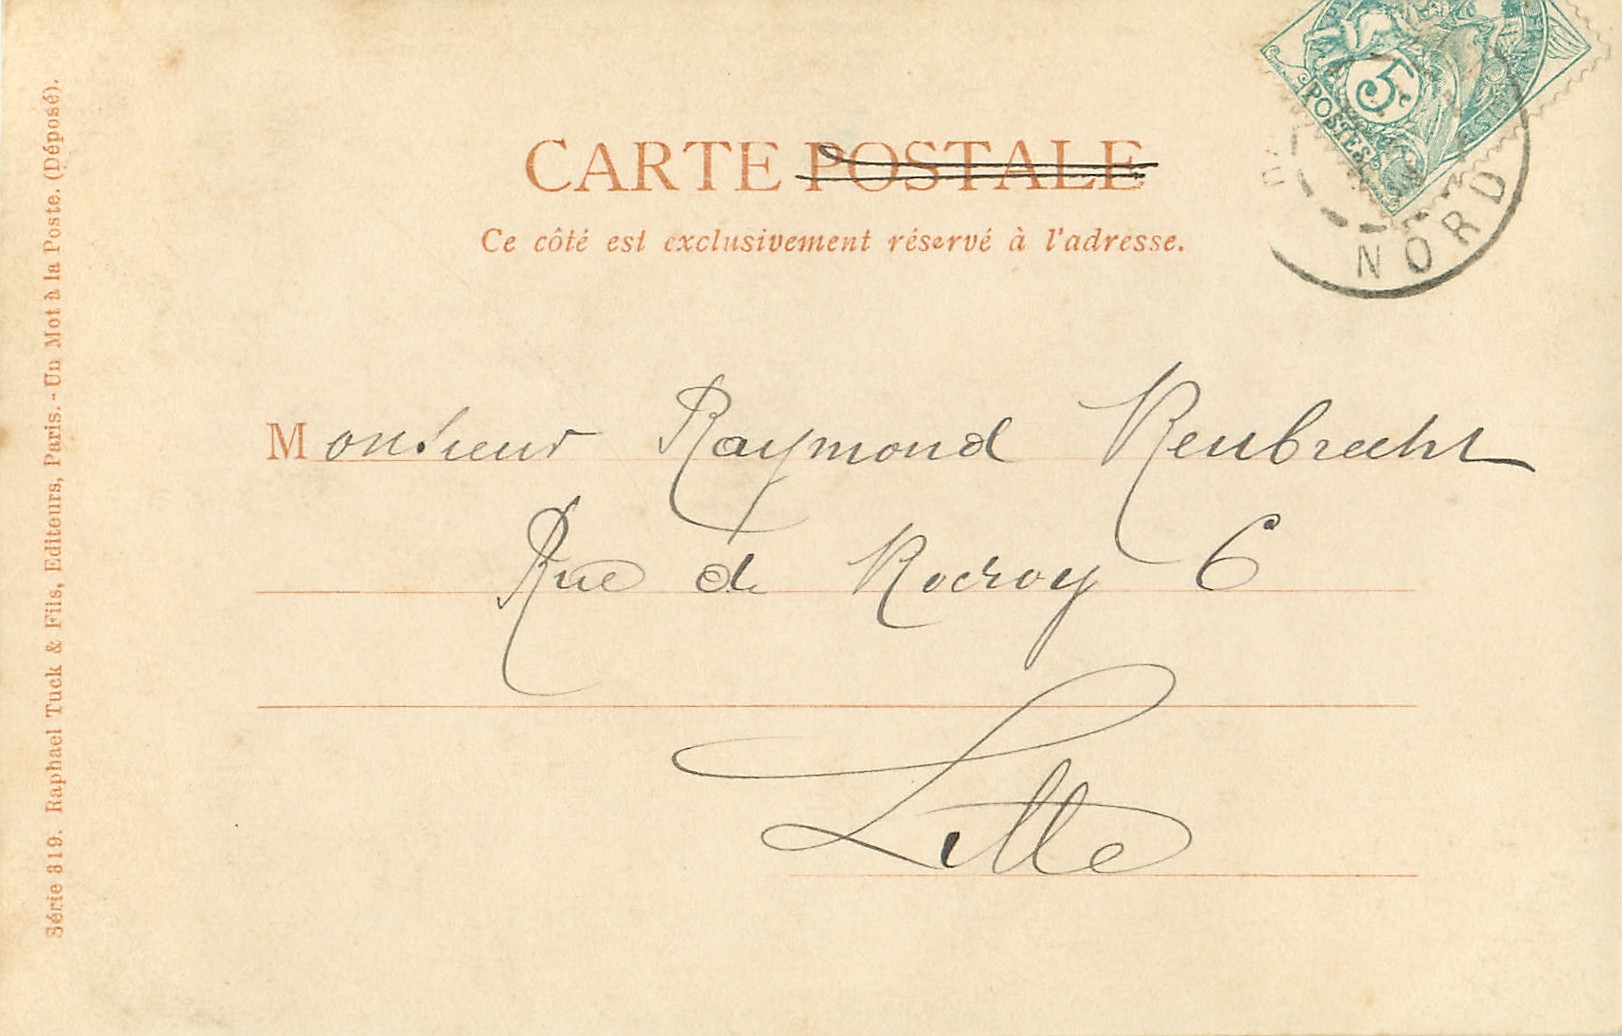 CARTE POSTALE
Ce côté est exclusivement réservé à l'adresse.
5c
POSTES
NORD
Monsieur Raymond Reubrecht
Rue de Rocroy 6
Lille
Série 819. Raphael Tuck & Fils, Editeurs, Paris. - Un Mot à la Poste. (Déposé).